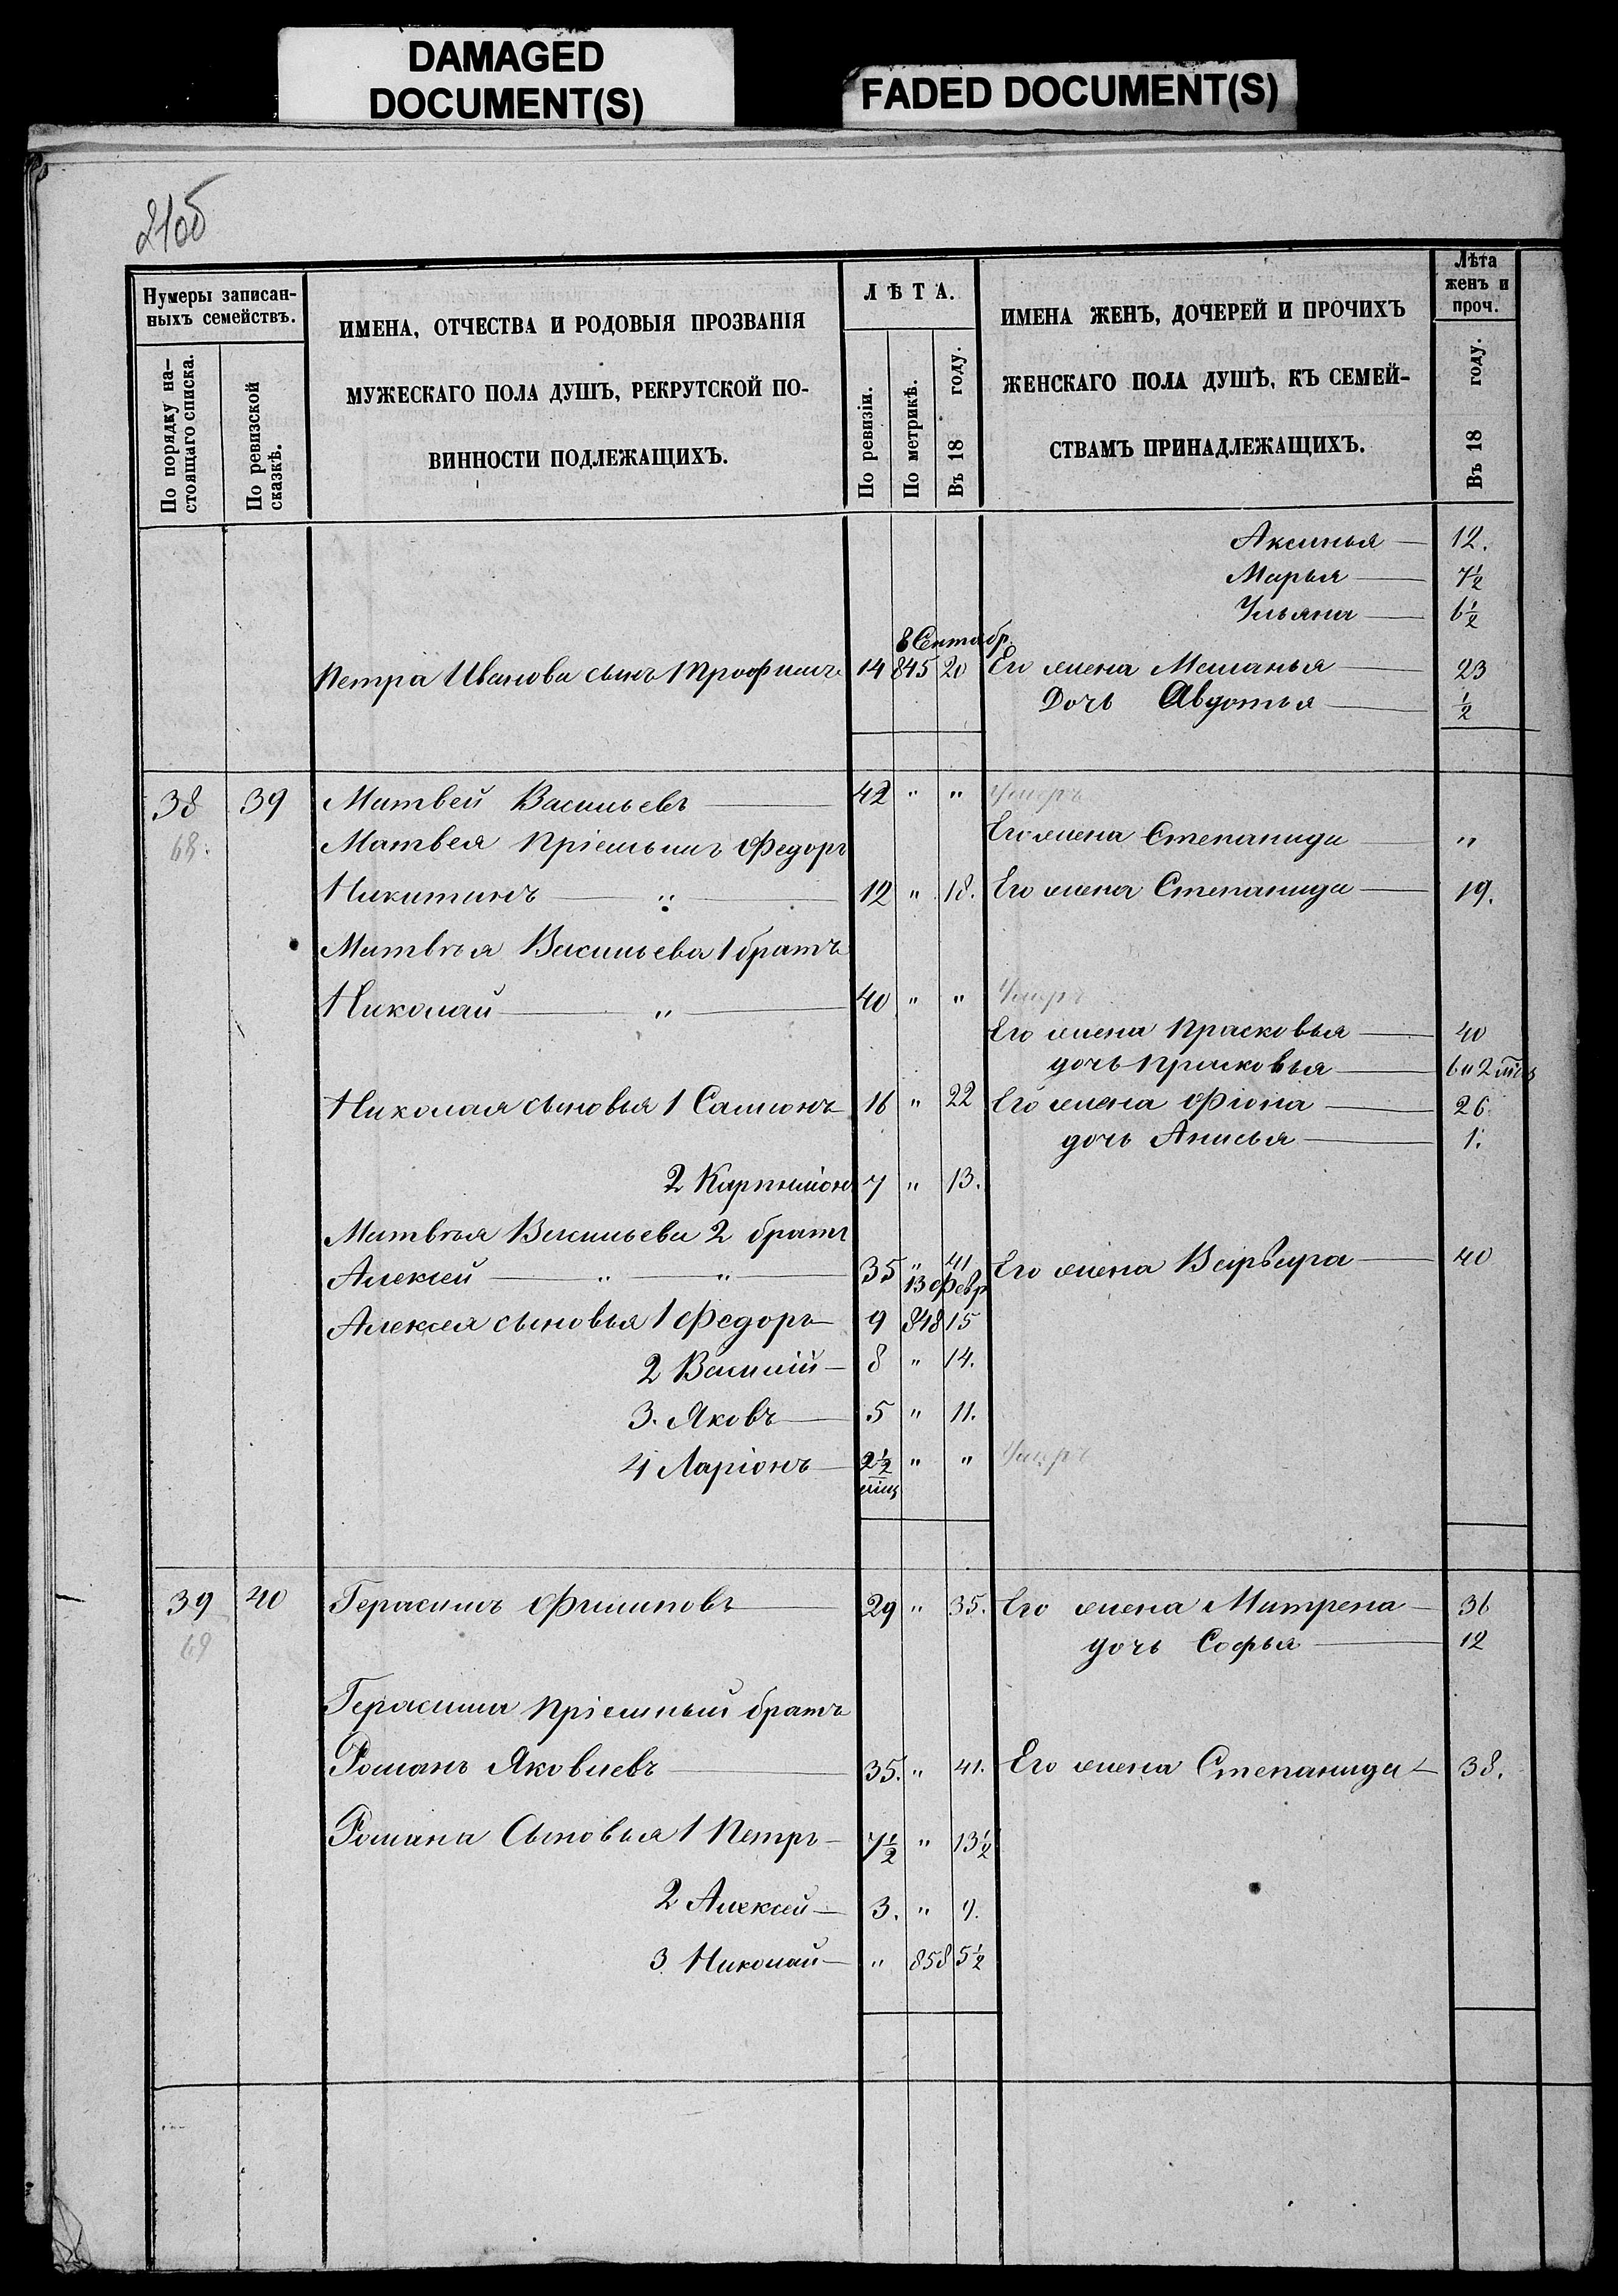 DAMAGED
DOCUMENT(S)
FADED DOCUMENT(S)
21об
Нумеры записан-
ныхъ семействъ.
По порядку на-
стоящаго списка.
По ревизской
сказкѣ.
ИМЕНА, ОТЧЕСТВА И РОДОВЫЯ ПРОЗВАНІЯ
МУЖЕСКАГО ПОЛА ДУШЪ, РЕКРУТСКОЙ ПО-
ВИННОСТИ ПОДЛЕЖАЩИХЪ.
ЛѢТА.
По ревизіи.
По метрикѣ.
Въ 18 году.
ИМЕНА ЖЕНЪ, ДОЧЕРЕЙ И ПРОЧИХЪ
ЖЕНСКАГО ПОЛА ДУШЪ, КЪ СЕМЕЙ-
СТВАМЪ ПРИНАДЛЕЖАЩИХЪ.
Лѣта
женъ и
проч.
Въ 18 году.
Аксинья — 12.
Марья — 7½
Ульяна — 6½
8 Сентабр.
Петра Иванова сынъ 1 Трофимъ 14 845 20 Его жена Меланья — 23
Дочь Авдотья — ½
38 39 Матвей Васильевъ — 42 " " Умеръ
68. Матвея Пріемышъ Федоръ Его жена Степанида — "
Никитинъ — " — 12 " 18. Его жена Степанида — 19.
Матвѣя Васильева 1 братъ
Николай — " — 40 " " Умеръ
Его жена Прасковья — 40
дочь Прасковья — 6 и 2 мѣс
Николая сыновья 1 Самсонъ 16 " 22 Его жена Фіона — 26.
дочь Анисья — 1.
2 Карпніонъ 7 " 13.
Матвѣя Васильева 2 братъ
Алексей — " — " — 35 " 41 Его жена Варвара — 40
13 Февр
Алексея сыновья 1 Федоръ — 9 848 15
2 Василій — 8 " 14.
3. Яковъ — 5 " 11.
4 Ларіонъ — 2½ " " Умеръ
мѣц
39 40 Герасимъ Филиповъ — 29 " 35. Его жена Матрена — 36
69 дочь Софья — 12
Герасима Пріемный братъ
Романъ Яковлевъ — 35. " 41. Его жена Степанида — 38.
Романа Сыновья 1 Петръ — 7½ " 13½
2 Алексей — 3. " 9.
3 Николай — " 858 5½